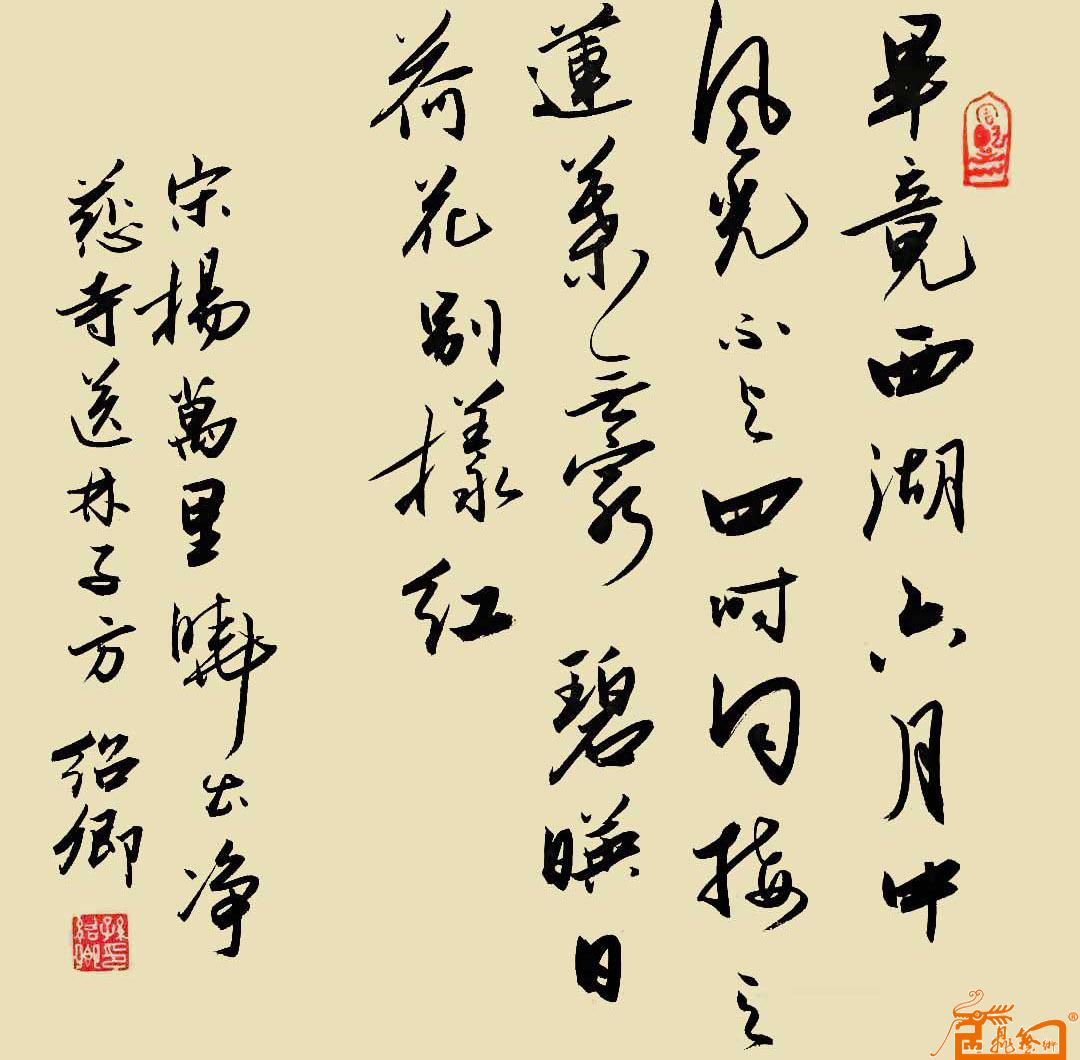 畢竟西湖六月中
風光不與四時同接天
蓮葉無窮碧暎日
荷花別樣紅
宋楊萬里曉出净
慈寺送林子方 紹卿